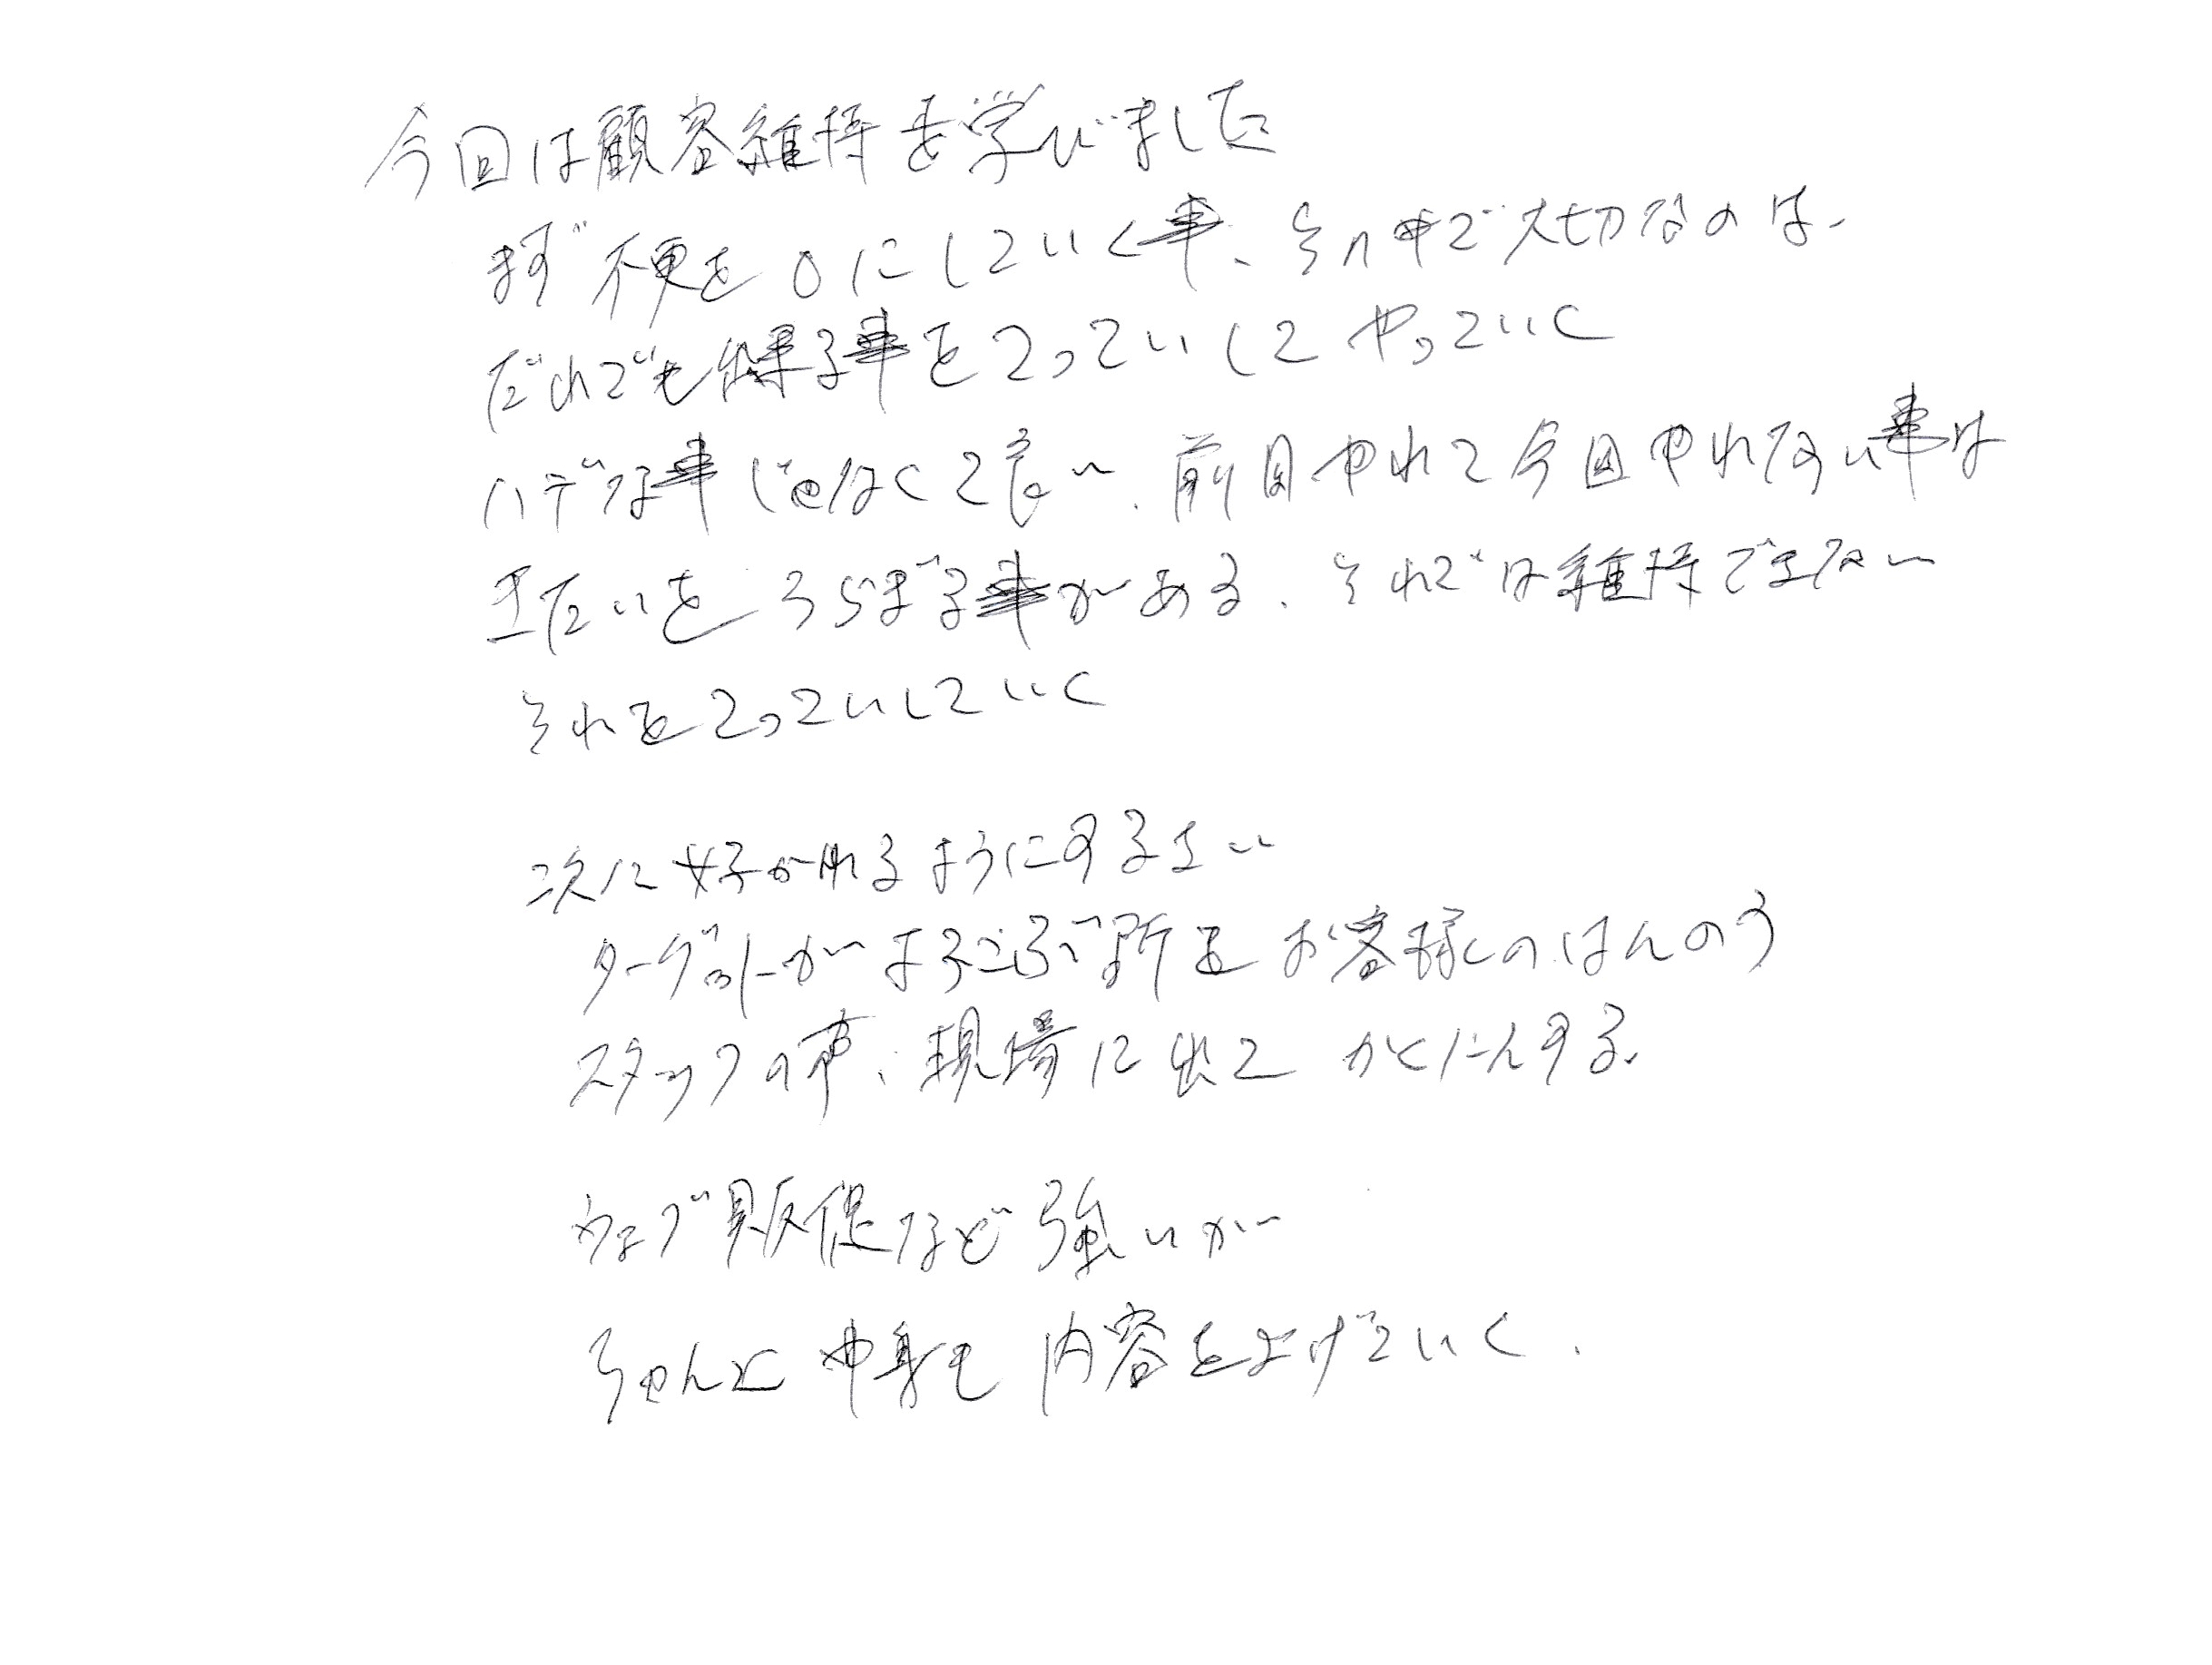 今回は顧客維持を学びました
まず不便を0にしていく事、その中で大切なのは、
だれでも出来る事をてっていしてやっていく
ハデな事じゃなくて良い、前回やれて今回やれない事は
きたいをうらぎる事がある、それでは維持できない
それをてっていしていく
次に好かれるようにする
ターゲットがよろこぶ所をお客様のはんのう
スタッフの声、現場に出て かくにんする。
ウェブ販促など強いが
ちゃんと中身も内容をよげていく.